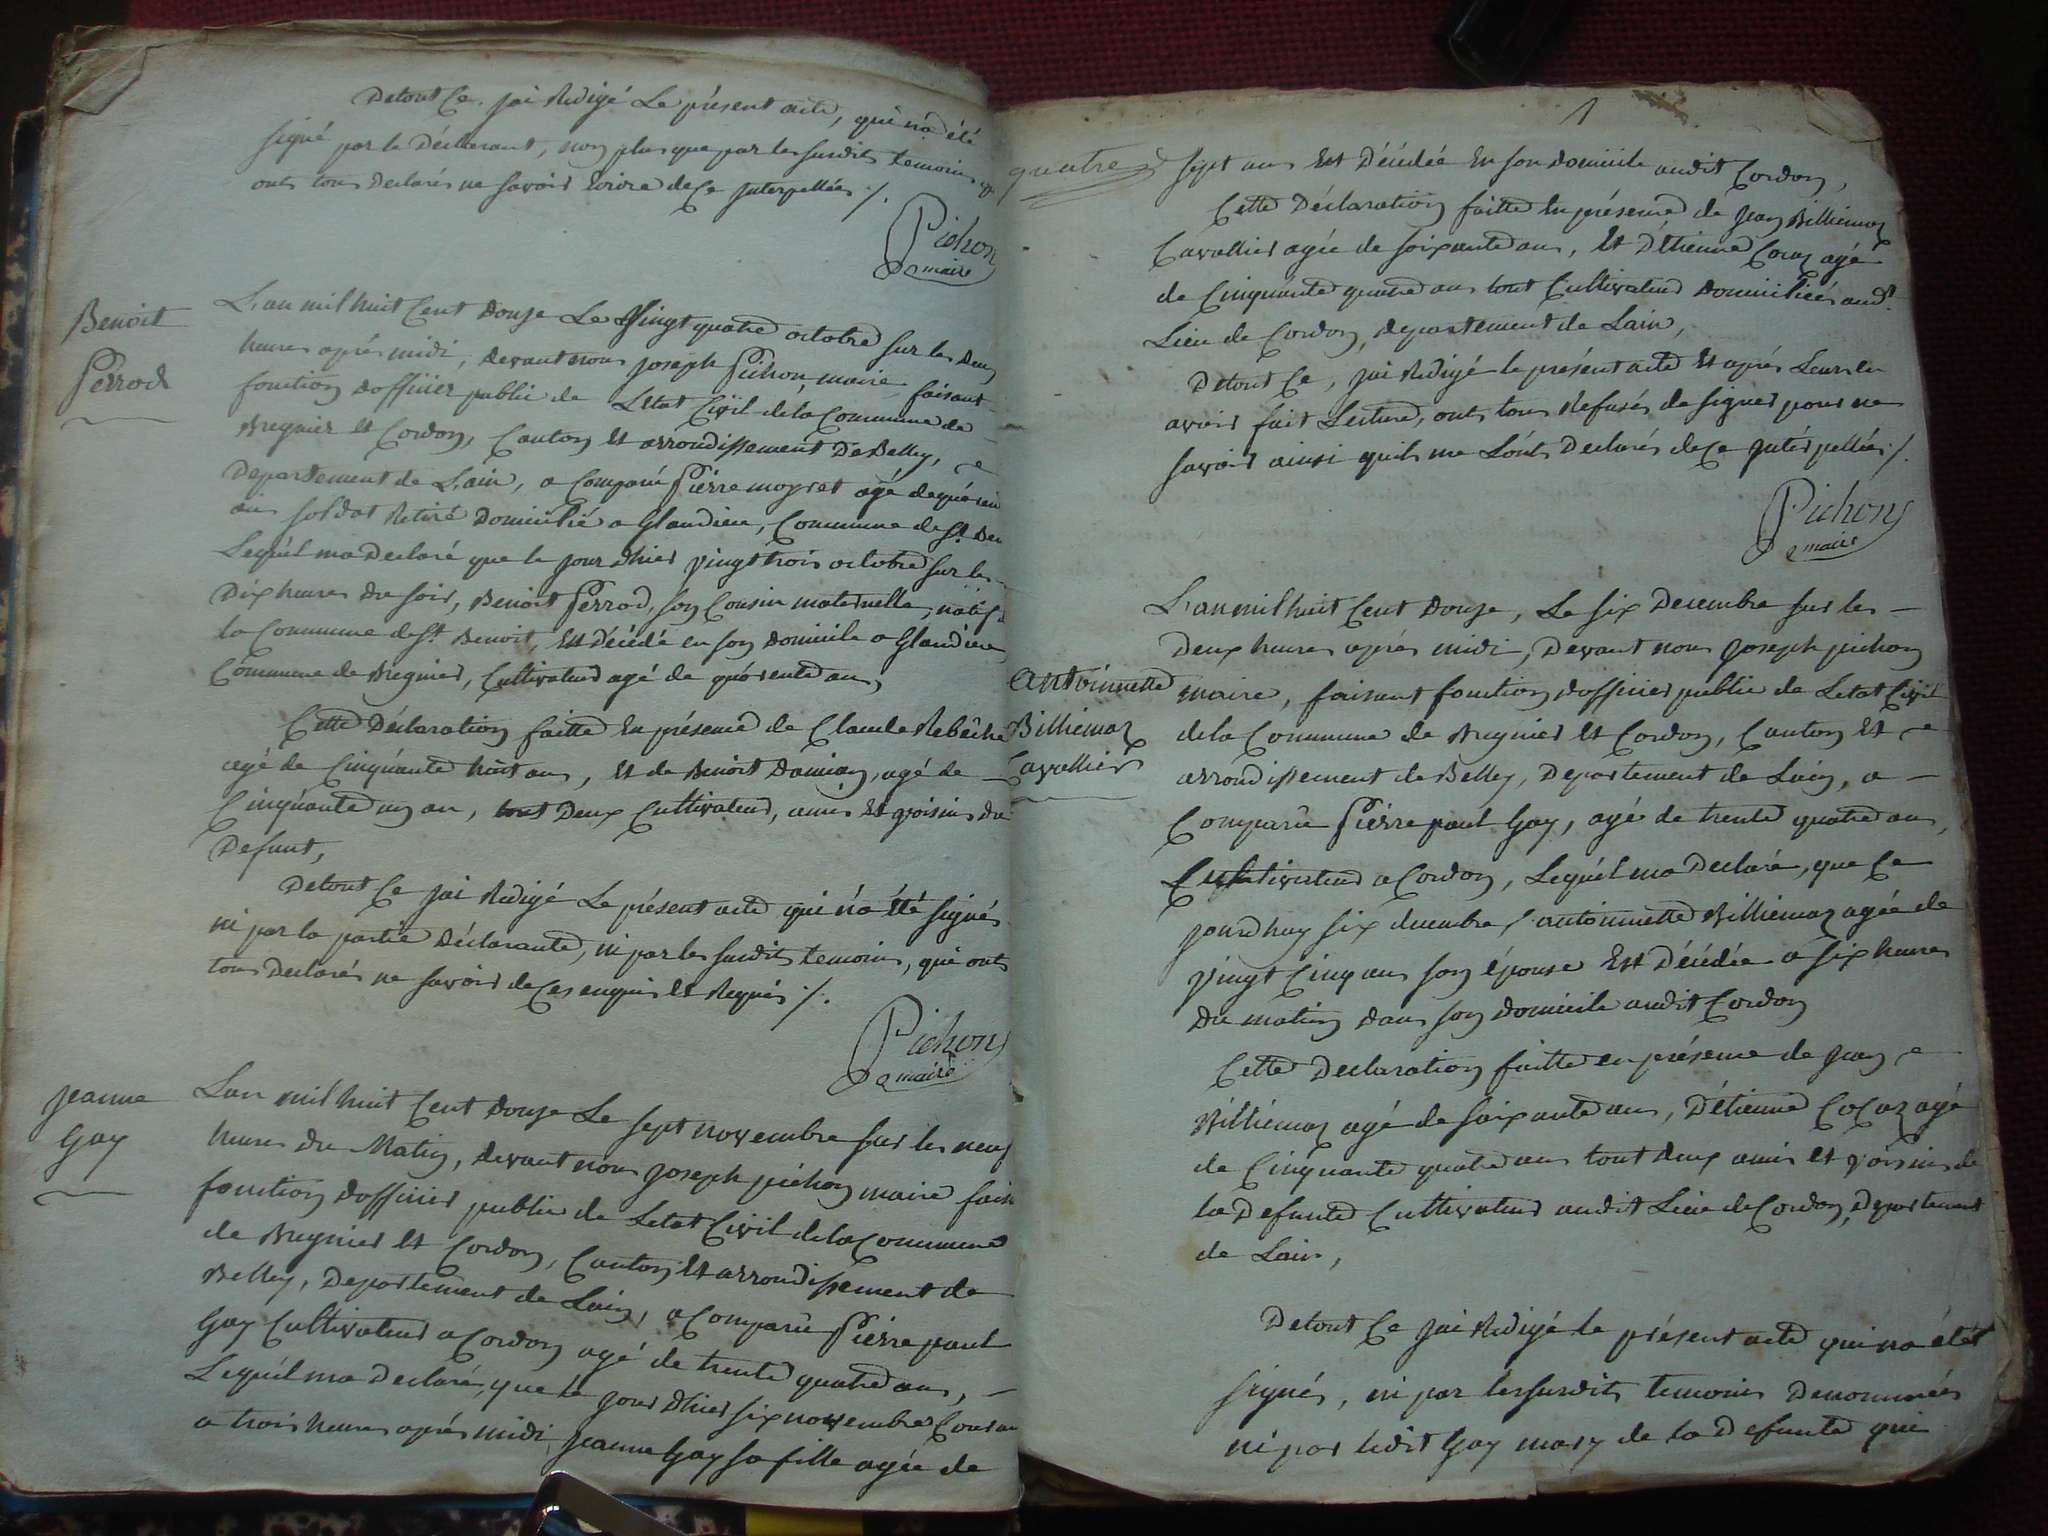 Detout Ce, jai Redigé Le présent acte, qui n'a été
signé par le Déclarant, non plus que par les susdits temoins qui
onts tous Declarés ne savoir Ecrire de Ce Interpellées /.
Pichon
maire
Benoit
Perrod
L'an mil huit Cent Douze Le Vingt quatre octobre sur les Deux
heures aprés midi, devant nous joseph Pichon maire faisant
fonction dofficier public de Letat Civil de la Commune de
Bregnier et Cordon, Canton et arrondissement De Belley,
Departement de L'ain, a Comparu Pierre moyret agé de quarente
ans soldat Retiré Domicilié a Glandieu, Commune de St. Ben
Lequél ma Declaré que le jour d'hier vingt trois octobre sur les
Dix heures du soir, Benoit Perrod, son Cousin maternelle, natif d
la Commune de St. Benoit, Est Décédé en son Domicile a Glandieu
Commune de Bregnier, Cultivateur agé de quarente ans,
Cette Déclaration faitte En présence de Claude Rebéche
agé de Cinquante huit ans, et de Benoit Damian, agé de
Cinquante un an, tout Deux Cultivateur, amis et voisins du
Defunt,
Detout Ce jai Redigé Le présent acte qui n'a été signés
ni par la partie Déclarante, ni par les susdits temoins, qui onts
tous Declarés ne savoir de Ces enquis et Requis /.
Pichon
maire
jeanne
Gay
L'an mil huit Cent Douze Le sept novembre sur les neuf
heures du Matin, devant nous joseph pichon maire fais
fonction dofficier public de Letat Civil de la Commune
de Bregnier et Cordon, Canton et arrondissement de
Belley, Departement de Lain, a Comparu Pierre paul
Gay Cultivateur a Cordon agé de trente quatre ans,
Lequél ma Declaré, que le jour d'hier six novembre Couran
a trois heures aprés midi, jeanne Gay sa fille agée de
1
quatre
sept ans Est Décédée En son domicile audit Cordon,
Cette Déclaration faitte En présence de jean Billiémaz
Cavallier agée de soixante ans, et D'étienne Cocaz agé
de Cinquante quatre ans tout Cultivateur Domiciliés aud.
Lieu de Cordon, departement de Lain,
Detout Ce, jai Redigé le présent acte Et aprés Leur en
avoir fait Lecture, onts tous Refusés de signer pour ne
savoir ainsi quils me L'ónts Declarés de Ce Interpellées /.
Pichon
maire
Antoinnette
Billiémaz
Cavallier
L'an mil huit Cent Douze, Le six Decembre sur les
Deux heures aprés midi, Devant nous joseph pichon
maire, faisant fonction dofficier public de Letat Civil
de la Commune de Bregnier et Cordon, Canton et
arrondissement de Belley, Departement de Lain, a
Comparu Pierre paul Gay, agé de trente quatre ans,
Cultivateur a Cordon, Lequél ma Declaré, que Ce
jourdhuy six decembre, antoinnette Billiémaz agée de
vingt Cinq ans son épouse Est Décédée a six heures
du matin dans son domicile audit Cordon
Cette Declaration faitte en présence de jean
Billiémaz agé de soixante ans, D'étienne Cocaz agé
de Cinquante quatre ans tout deux amis et voisins de
la Defunte Cultivateur audit Lieu de Cordon, Departement
de Lain,
Detout Ce jai Redigé le présent acte qui n'a été
signés, ni par les susdits temoins Denommées
ni par ledit Gay mary de la Defunte qui